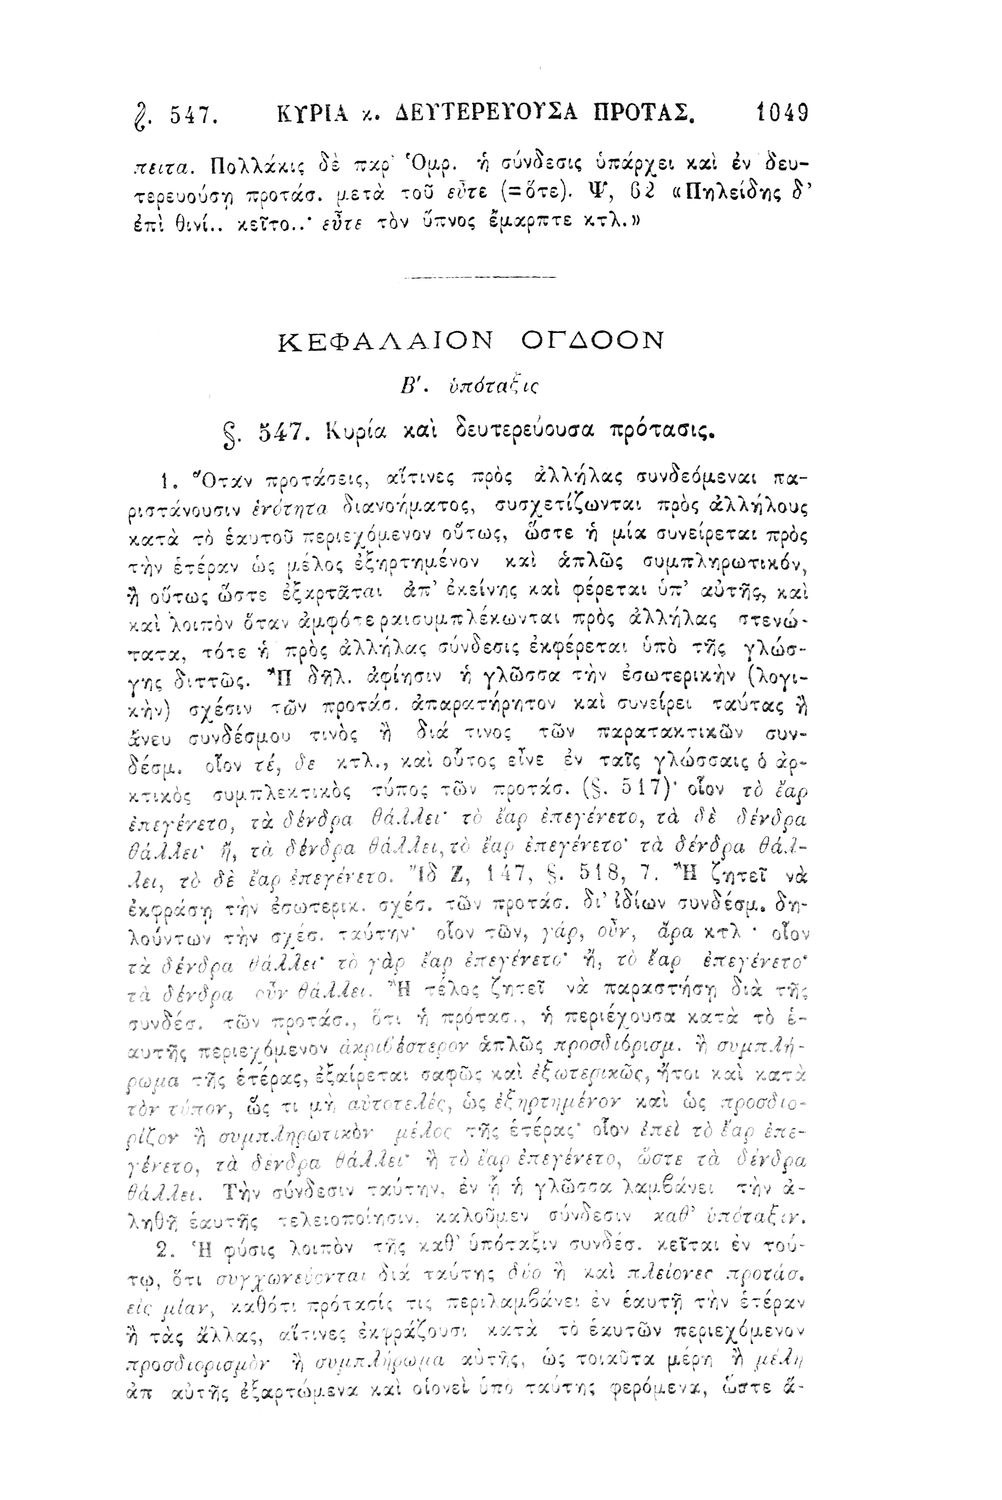 §. 547. ΚΥΡΙΑ κ. ΔΕΥΤΕΡΕΥΟΥΣΑ ΠΡΟΤΑΣ. 1049
πειτα. Πολλάκις δὲ παρ' Ὁμρ. ἡ σύνδεσις ὑπάρχει καὶ ἐν δευ-
τερευούσῃ προτάσ. μετὰ τοῦ εὖτε (=ὅτε). Ψ, 62 «Πηλείδης δ'
ἐπὶ θινί.. κεῖτο..· εὖτε τὸν ὕπνος ἔμαρπτε κτλ.»
ΚΕΦΑΛΑΙΟΝ ΟΓΔΟΟΝ
Β'. ὑπόταξις
§. 547. Κυρία καὶ δευτερεύουσα πρότασις.
1. Ὅταν προτάσεις, αἵτινες πρὸς ἀλλήλας συνδεόμεναι πα-
ριστάνουσιν ἑνότητα διανοήματος, συσχετίζωνται πρὸς ἀλλήλους
κατὰ τὸ ἑαυτοῦ περιεχόμενον οὕτως, ὥστε ἡ μία συνείρεται πρὸς
τὴν ἑτέραν ὡς μέλος ἐξηρτημένον καὶ ἁπλῶς συμπληρωτικόν,
ἢ οὕτως ὥστε ἐξαρτᾶται ἀπ' ἐκείνης καὶ φέρεται ὑπ' αὐτῆς, καὶ
καὶ λοιπὸν ὅταν ἀμφότεραισυμπλέκωνται πρὸς ἀλλήλας στενώ-
τατα, τότε ἡ πρὸς ἀλλήλας σύνδεσις ἐκφέρεται ὑπὸ τῆς γλώσ-
γης διττῶς. Ἢ δηλ. ἀφίησιν ἡ γλῶσσα τὴν ἐσωτερικὴν (λογι-
κὴν) σχέσιν τῶν προτάσ. ἀπαρατήρητον καὶ συνείρει ταύτας ἢ
ἄνευ συνδέσμου τινὸς ἢ διά τινος τῶν παρατακτικῶν συν-
δέσμ. οἷον τέ, δε κτλ., καὶ οὗτος εἶνε ἐν ταῖς γλώσσαις ὁ ἀρ-
κτικὸς συμπλεκτικὸς τύπος τῶν προτάσ. (§. 517)· οἷον τὸ ἔαρ
ἐπεγένετο, τὰ δένδρα θάλλει· τὸ ἔαρ ἐπεγένετο, τὰ δὲ δένδρα
θάλλει· ἤ, τὰ δένδρα θάλλει, τὸ ἔαρ ἐπεγένετο· τὰ δένδρα θάλ-
λει, τὸ δὲ ἔαρ ἐπεγένετο. Ἴδ Ζ, 147, §. 518, 7. Ἢ ζητεῖ νὰ
ἐκφράσῃ τὴν ἐσωτερικ. σχέσ. τῶν προτάσ. δι' ἰδίων συνδέσμ. δη-
λούντων τὴν σχέσ. ταύτην· οἷον τῶν, γάρ, οὖν, ἄρα κτλ · οἷον
τὰ δένδρα θάλλει· τὸ γὰρ ἔαρ ἐπεγένετο· ἤ, τὸ ἔαρ ἐπεγένετο·
τὰ δένδρα οὖν θάλλει. Ἢ τέλος ζητεῖ νὰ παραστήσῃ διὰ τῆς
συνδέσ. τῶν προτάσ., ὅτι ἡ πρότασ., ἡ περιέχουσα κατὰ τὸ ἑ-
αυτῆς περιεχόμενον ἀκριβέστερον ἁπλῶς προσδιόρισμ. ἢ συμπλή-
ρωμα τῆς ἑτέρας, ἐξαίρεται σαφῶς καὶ ἐξωτερικῶς, ἤτοι καὶ κατὰ
τὸν τύπον, ὥς τι μὴ αὐτοτελές, ὡς ἐξηρτημένον καὶ ὡς προσδιο-
ρίζον ἢ συμπληρωτικὸν μέλος τῆς ἑτέρας· οἷον ἐπεὶ τὸ ἔαρ ἐπε-
γένετο, τὰ δένδρα θάλλει· ἢ τὸ ἔαρ ἐπεγένετο, ὥστε τὰ δένδρα
θάλλει. Τὴν σύνδεσιν ταύτην, ἐν ᾗ ἡ γλῶσσα λαμβάνει τὴν ἀ-
ληθῆ ἑαυτῆς τελειοποίησιν, καλοῦμεν σύνδεσιν καθ' ὑπόταξιν.
2. Ἡ φύσις λοιπὸν τῆς καθ' ὑπόταξιν συνδέσ. κεῖται ἐν τού-
τῳ, ὅτι συγχωνεύονται διὰ ταύτης δύο ἢ καὶ πλείονες προτάσ.
εἰς μίαν, καθότι πρότασίς τις περιλαμβάνει ἐν ἑαυτῇ τὴν ἑτέραν
ἢ τὰς ἄλλας, αἵτινες ἐκφράζουσι κατὰ τὸ ἑαυτῶν περιεχόμενον
προσδιορισμὸν ἢ συμπλήρωμα αὐτῆς, ὡς τοιαῦτα μέρη ἢ μέλη
ἀπ αὐτῆς ἐξαρτώμενα καὶ οἱονεὶ ὑπὸ ταύτης φερόμενα, ὥστε ἅ-